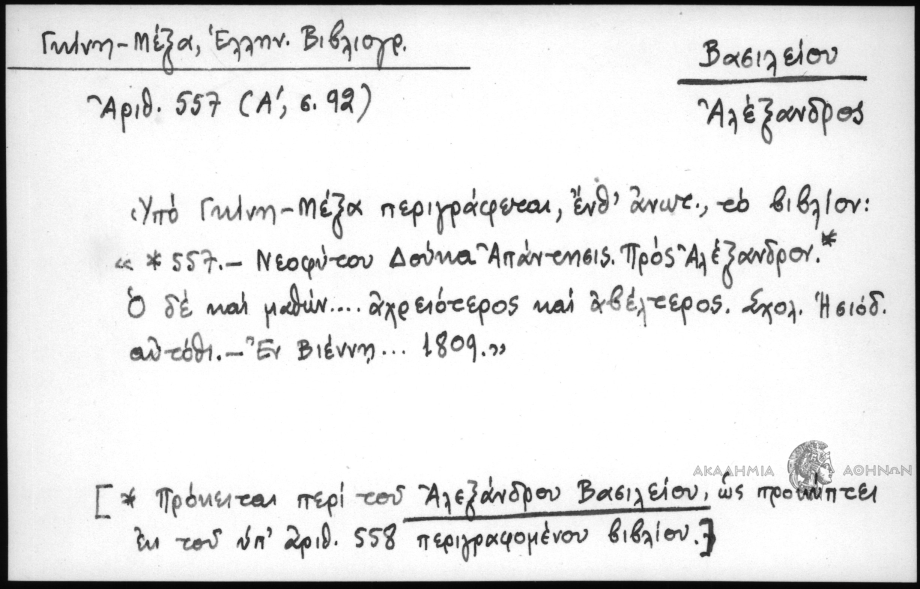 Γκίνη-Μέξα, Ἑλλην. Βιβλιογρ.
Βασιλείου
Ἀριθ. 557 (Α΄, σ. 92)
Ἀλέξανδρος
Ὑπό Γκίνη-Μέξα περιγράφεται, ἔνθ' ἀνωτ., τὸ βιβλίον:
« * 557.– Νεοφύτου Δούκα Ἀπάντησις. Πρός Ἀλέξανδρον.*
Ὁ δέ καί μαθών.... ἀχρειότερος καί ἀβέλτερος. Σχολ. Ἡσιόδ.
αὐτόθι.– Ἐν Βιέννῃ... 1809.»
ΑΚΑΔΗΜΙΑ ΑΘΗΝΩΝ
[* Πρόκειται περί τοῦ Ἀλεξάνδρου Βασιλείου, ὡς προκύπτει
ἐκ τοῦ ὑπ' ἀριθ. 558 περιγραφομένου βιβλίου.]